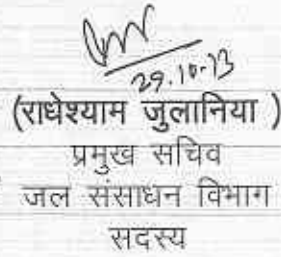 29.10-13
(राधेश्याम जुलानिया )
प्रमुख सचिव
जल संसाधन विभाग
सदस्य